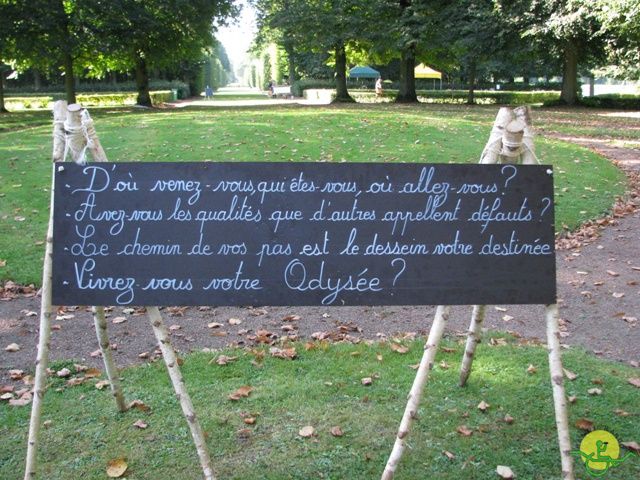 - D'où venez-vous, qui êtes-vous, où allez-vous ?
- Avez-vous les qualités que d'autres appellent défauts ?
- Le chemin de vos pas est le dessein votre destinée
- Vivrez-vous votre Odysée ?